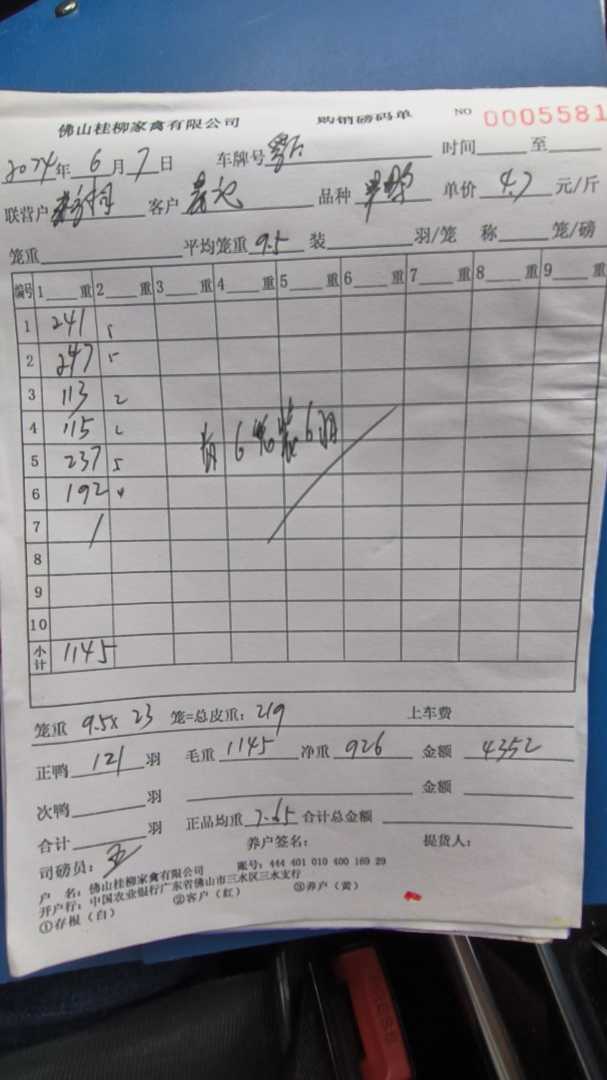 佛山桂柳家禽有限公司 购销磅码单 NO 0005581
2024年 6 月 7 日 车牌号 时间 至
联营户 客户 品种 单价 4.7 元/斤
笼重 平均笼重 9.5 装 羽/笼 称 笼/磅
编号 1 重 2 重 3 重 4 重 5 重 6 重 7 重 8 重 9 重
1 241 5
2 247 5
3 113 2
4 115 2
5 237 5
6 192 4
7
8
9
10
小计 1145
有6%装6羽
笼重 9.5x 23 笼=总皮重: 219 上车费
正鸭 121 羽 毛重 1145 净重 926 金额 4352
次鸭 羽 金额
合计 羽 正品均重 7.65 合计总金额
司磅员: 养户签名: 提货人:
户 名: 佛山桂柳家禽有限公司 账号: 444 401 010 400 169 29
开户行: 中国农业银行广东省佛山市三水区三水支行
①存根(白) ②客户(红) ③养户(黄)